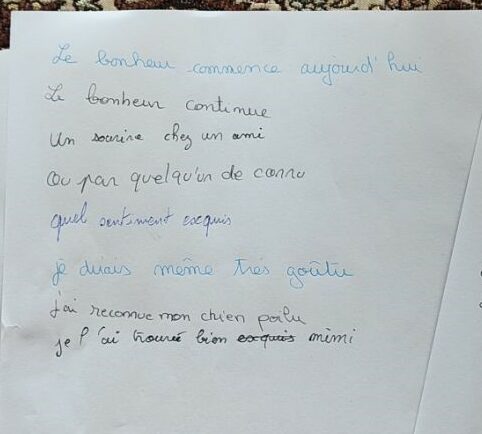 Le bonheur commence aujourd'hui
Le bonheur continue
Un sourire chez un ami
Ou par quelqu'un de connu
quel sentiment exquis
je dirais même très goûtu
j'ai reconnue mon chien poilu
je l'ai trouvé bien exquis mimi